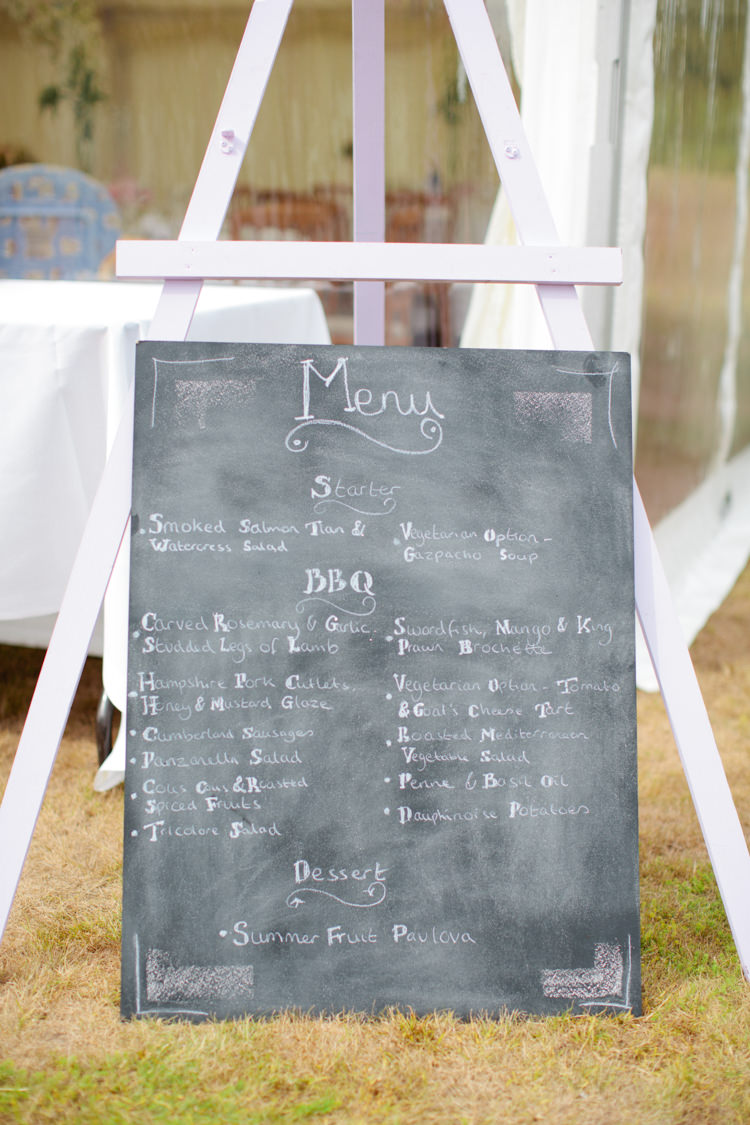 Menu
Starter
• Smoked Salmon Tian &
Watercress Salad
• Vegetarian Option -
Gazpacho Soup
BBQ
• Carved Rosemary & Garlic
Studded Legs of Lamb
• Hampshire Pork Cutlets,
Honey & Mustard Glaze
• Cumberland Sausages
• Panzanella Salad
• Cous Cous & Roasted
Spiced Fruits
• Tricolore Salad
• Swordfish, Mango & King
Prawn Brochette
• Vegetarian Option - Tomato
& Goat's Cheese Tart
• Roasted Mediterranean
Vegetable Salad
• Penne & Basil Oil
• Dauphinoise Potatoes
Dessert
• Summer Fruit Pavlova